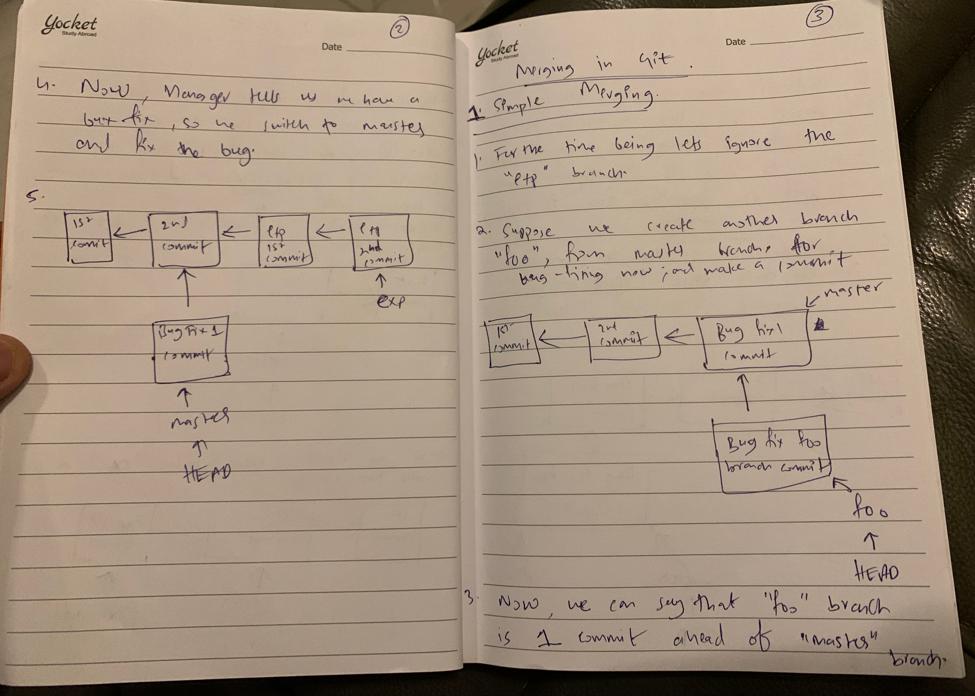 yocket
Study Abroad
2
Date
4. Now, Manager tells us we have a
bug fix, so we switch to master
and fix the bug.
5.
1st
commit
2nd
commit
exp
1st
commit
exp
2nd
commit
exp
Bug fix 1
commit
master
HEAD
3
yocket
Study Abroad
Date
Merging in Git.
1. Simple Merging.
1. For the time being lets ignore the
"exp" branch.
2. Suppose we create another branch
"foo", from master branch, for
bug-fixing now, and make a commit
master
1st
commit
2nd
commit
Bug fix 1
commit
Bug fix foo
branch commit
foo
HEAD
3. Now, we can say that "foo" branch
is 1 commit ahead of "master"
branch.